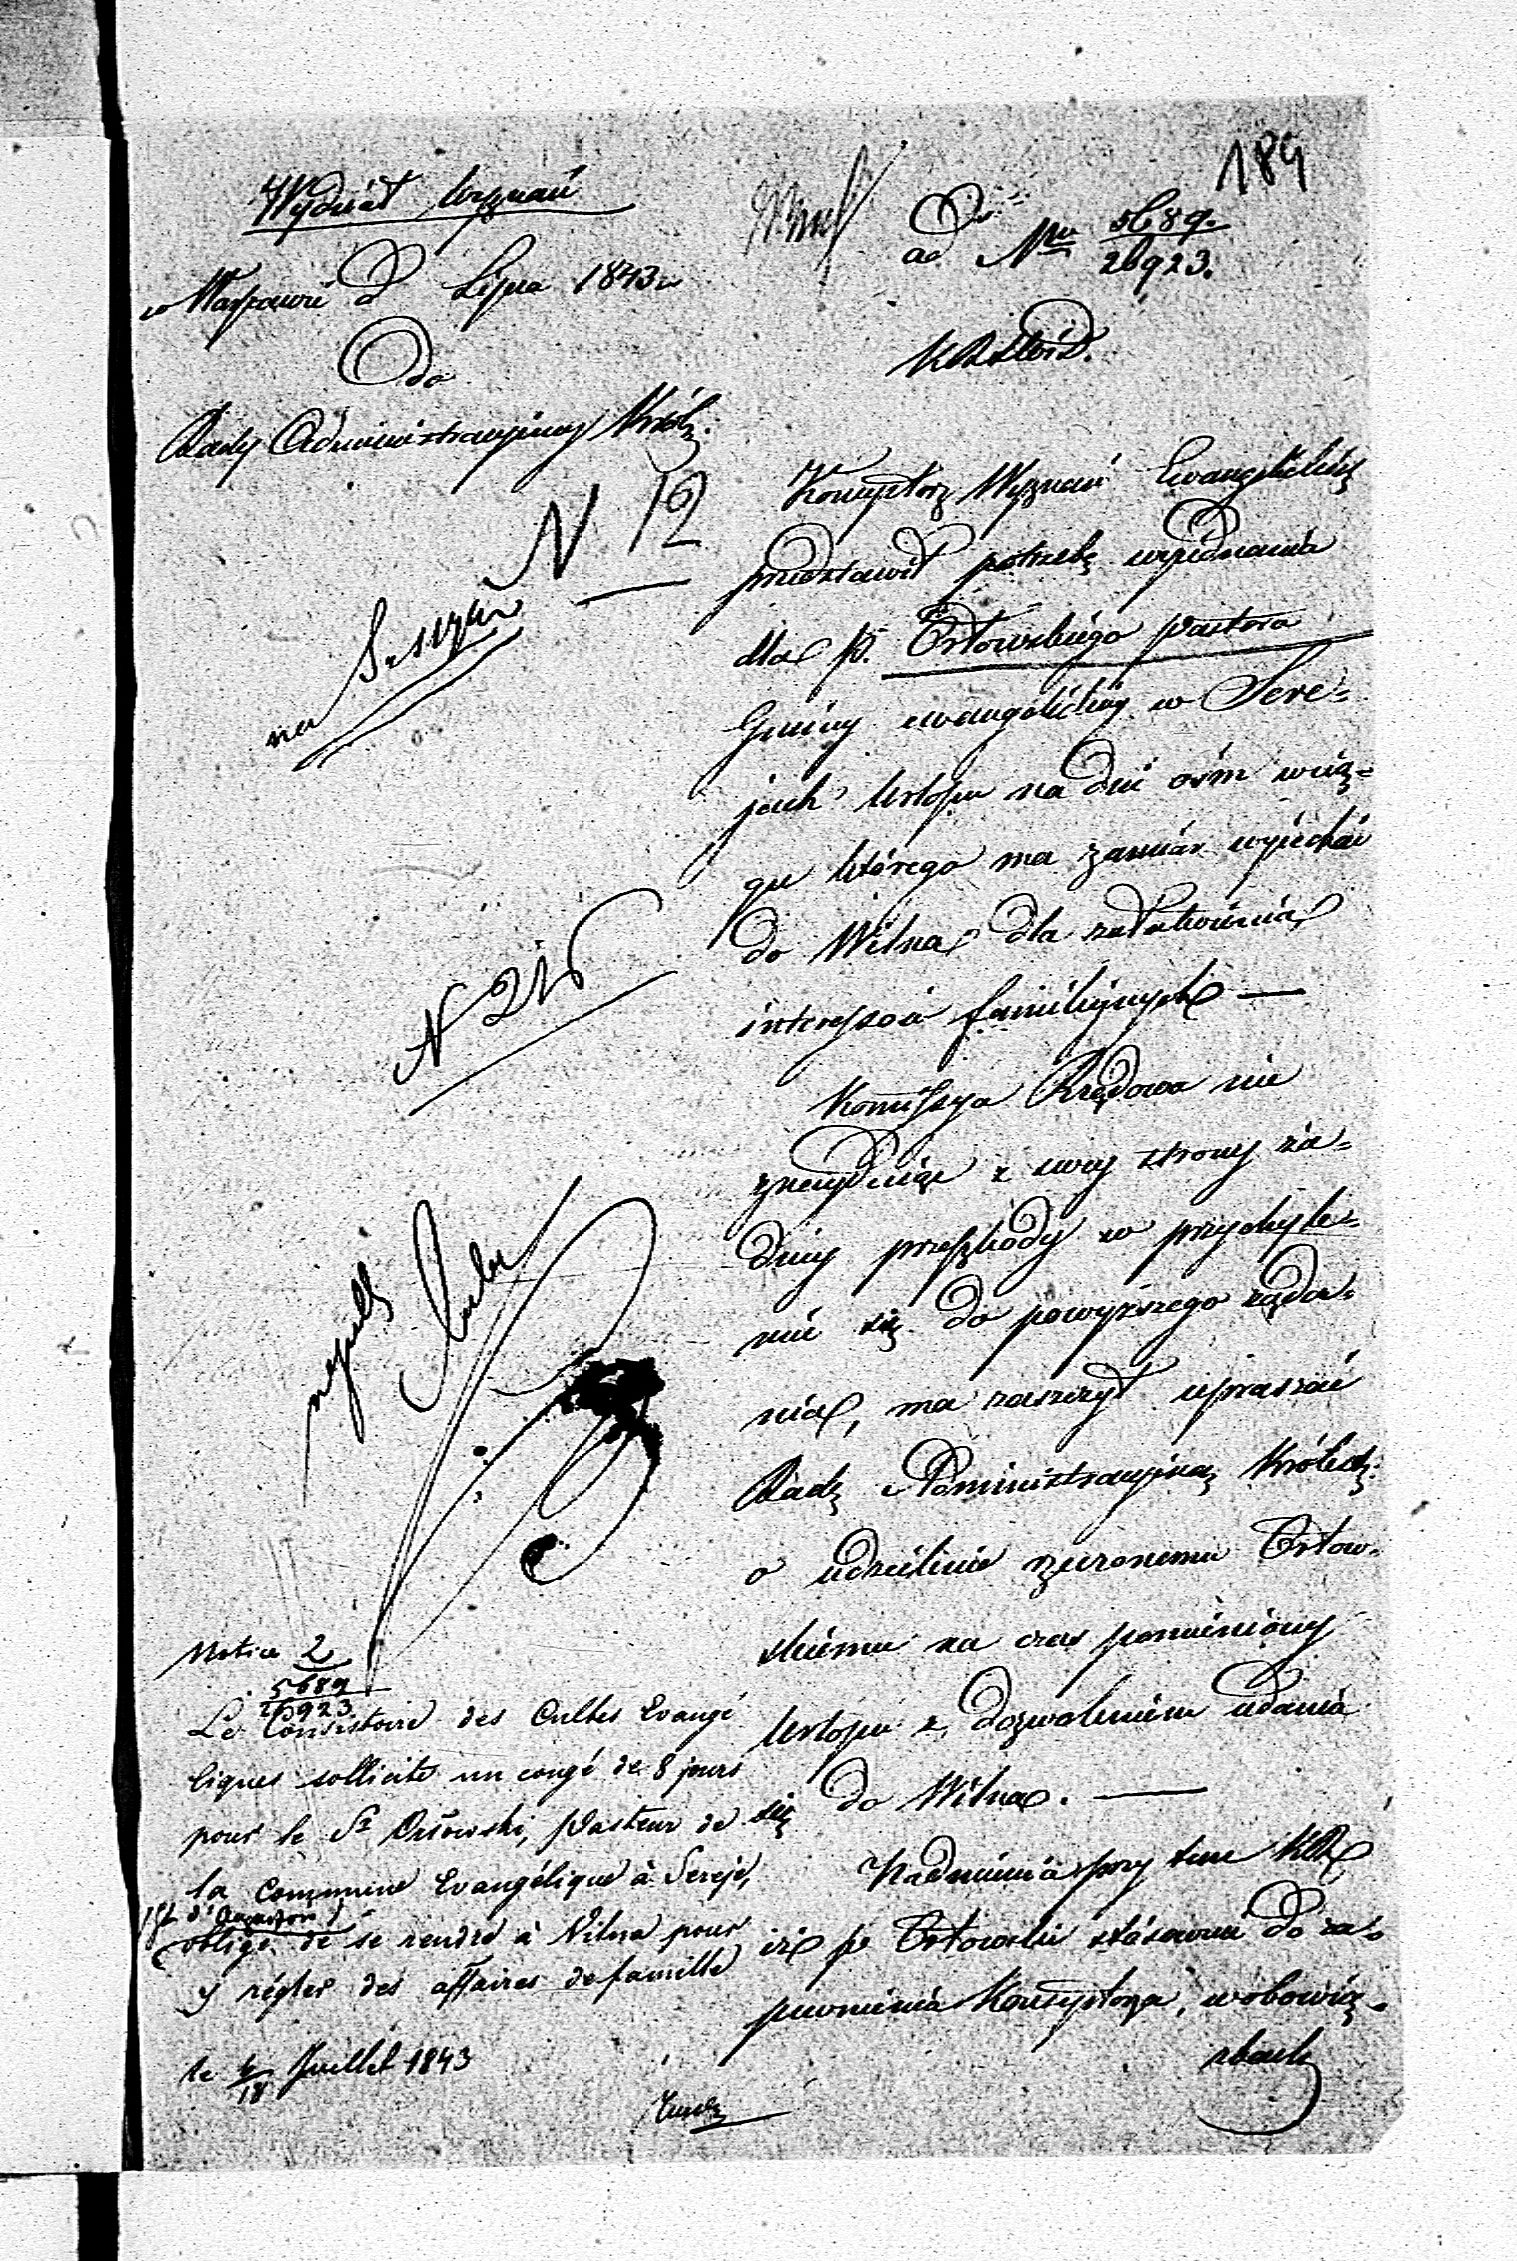 189
Wydział Wyznań
w Warszawie d Lipca 1843 r
Do
Rady Administracyjney Król:
ad Nru 5689.
26923.
N 12
na
N 216
Konsystorz Wyznań Ewangelickich
przedstawił potrzebę wyjednania
dla P. Orłowskiego Pastora
Gminy ewangelickiéj w Sere=
jach Urlopu na dni ośm w cią=
gu którego ma zamiar wyjechać
do Wilna dla załatwienia
interessów familijnych —
Kommissya Rządowa nie
znajdując z swej strony ża=
dnej przeszkody w przychyle=
niu się do powyższego żąda=
nia, ma zaszczyt upraszać
Radę Administracyjną Królestwa:
o udzielenie rzeczonemu Orłow=
skiemu na czas pomieniony
Urlopu z dozwoleniem udania
się do Wilna. —
Nadmienia przy tem KR
iż P Orłowski stósownie do za=
pewnienia Konsystorza, w obowią=
zkach
Notice 2
5689
26923
Le Consistoire des Cultes Evangé
liques sollicite un congé de 8 jours
pour le Sr Orłowski, Pasteur de
la Commune Evangélique à Sereje,
(Gt d'Augustów)
obligé de se rendre à Vilna pour
y régler des affaires de famille
le 6/18 Juillet 1843